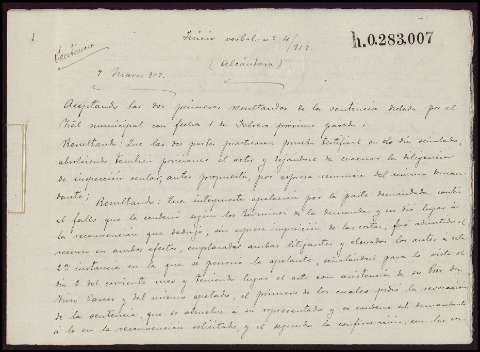 Juicio verbal nº 4/912
h.0.283.007
(Alcántara)
Sentencia
7 Marzo 912.
Aceptando los dos primeros resultandos de la sentencia dictada por el
Tral municipal con fecha 1 de Febrero próximo pasado.
Resultando: Que las dos partes practicaron prueba testifical en el día señalado,
absolviendo también posiciones el actor y dejándose de evacuar la diligencia
de inspección ocular, antes propuesta, por expresa renuncia del mismo deman
dante;
Resultando: Que interpuesta apelación por la parte demandada contra
el fallo que la condenó según los términos de la demanda y no dió lugar a
la reconvención que dedujo, sin expresa imposición de las costas, fué admitido el
recurso en ambos efectos, emplazados ambos litigantes y elevados los autos a esta
2ª instancia en la que se personó la apelante, señalándose para la vista el
día 2 del corriente mes y teniendo lugar el acto con asistencia de
y del mismo apelado, el primero de los cuales pidió la revocación
de la sentencia, que se absuelva a su representado y se condene al demandante
a lo en la reconvención solicitado, y el segundo la confirmación, con las cos